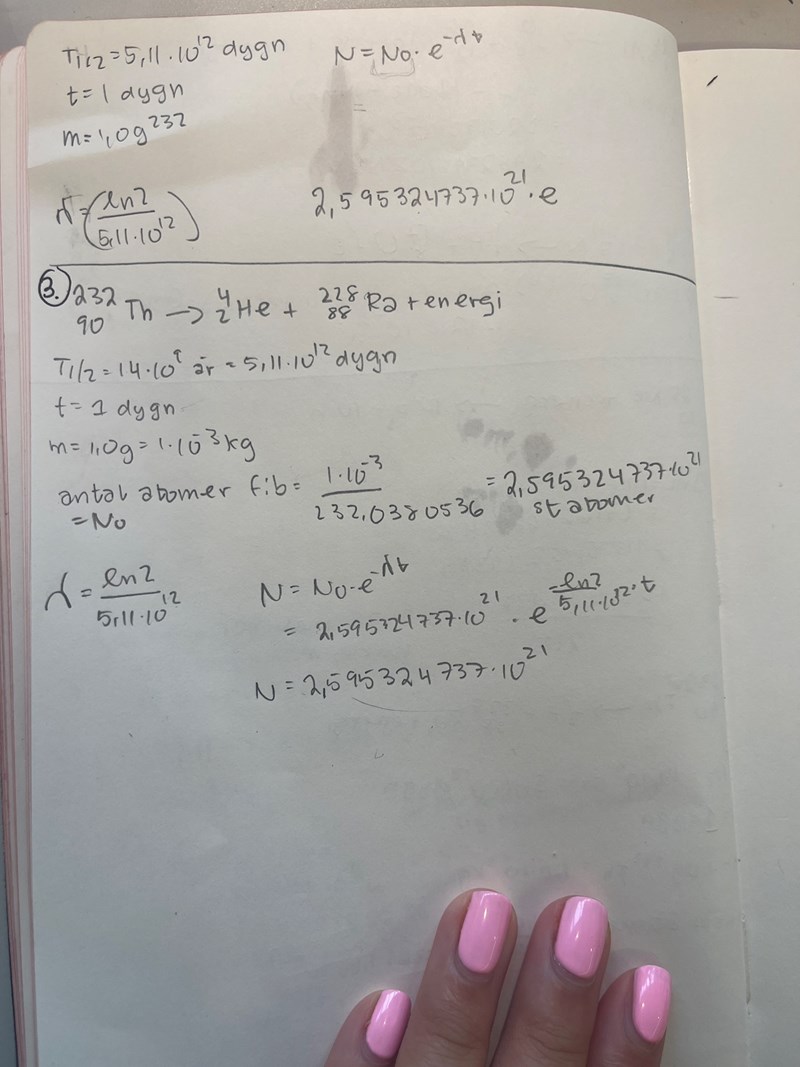 T1/2 = 5,11·10¹² dygn
N = N₀·e^-λt
t = 1 dygn
m = 1,0g 232
λ = (ln2 / 5,11·10¹²)
2,595324737·10²¹·e
3. ²³²₉₀Th → ⁴₂He + ²²⁸₈₈Ra + energi
T1/2 = 14·10⁹ år = 5,11·10¹² dygn
t = 1 dygn
m = 1,0g = 1·10⁻³ kg
antal atomer f.i.b = 1·10⁻³ / 232,0380536 = 2,595324737·10²¹
= N₀
st atomer
λ = ln2 / 5,11·10¹²
N = N₀·e^-λt
= 2,595324737·10²¹ · e^-ln2/5,11·10¹²·t
N = 2,595324737·10²¹